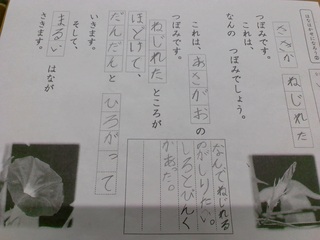 さきが ねじれた
つぼみです。
これは、
なんの つぼみでしょう。
これは、あさがおの
つぼみです。
ねじれた ところが
ほどけて、
だんだんと ひろがって
いきます。
そして、
まるい はなが
さきます。
なんでねじれる
のかしりたい。
しろとぴんく
があった。